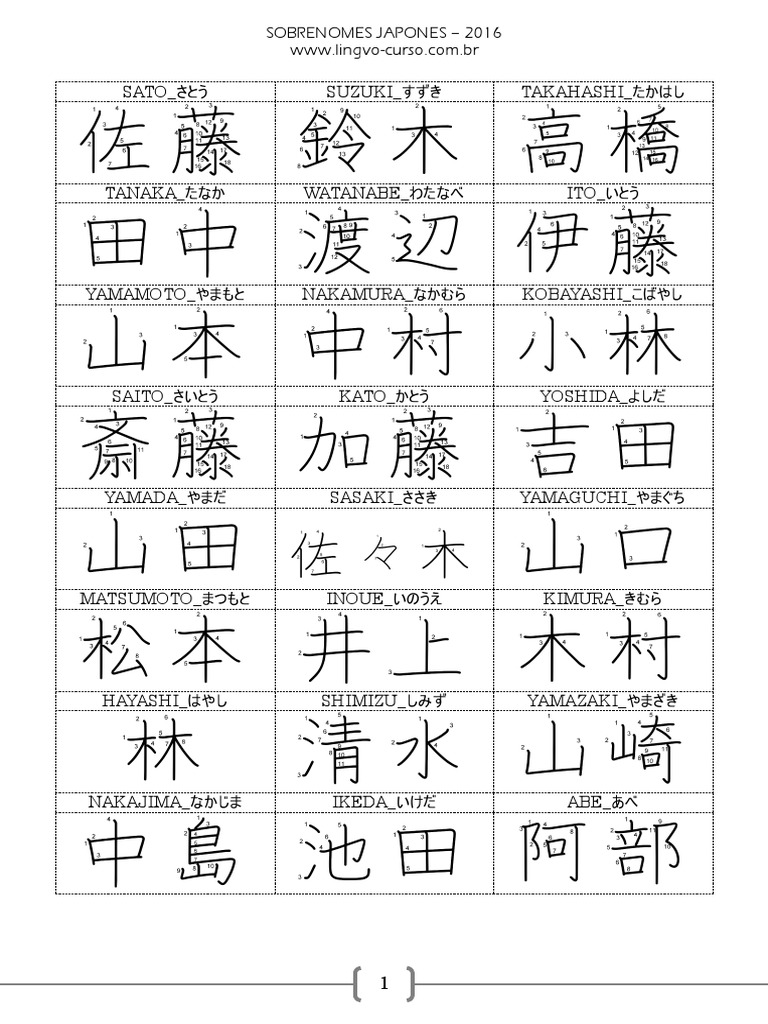 SOBRENOMES JAPONES – 2016
www.lingvo-curso.com.br
SATO_さとう SUZUKI_すずき TAKAHASHI_たかはし
佐藤 鈴木 高橋
TANAKA_たなか WATANABE_わたなべ ITO_いとう
田中 渡辺 伊藤
YAMAMOTO_やまもと NAKAMURA_なかむら KOBAYASHI_こばやし
山本 中村 小林
SAITO_さいとう KATO_かとう YOSHIDA_よしだ
斎藤 加藤 吉田
YAMADA_やまだ SASAKI_ささき YAMAGUCHI_やまぐち
山田 佐々木 山口
MATSUMOTO_まつもと INOUE_いのうえ KIMURA_きむら
松本 井上 木村
HAYASHI_はやし SHIMIZU_しみず YAMAZAKI_やまざき
林 清水 山崎
NAKAJIMA_なかじま IKEDA_いけだ ABE_あべ
中島 池田 阿部
1